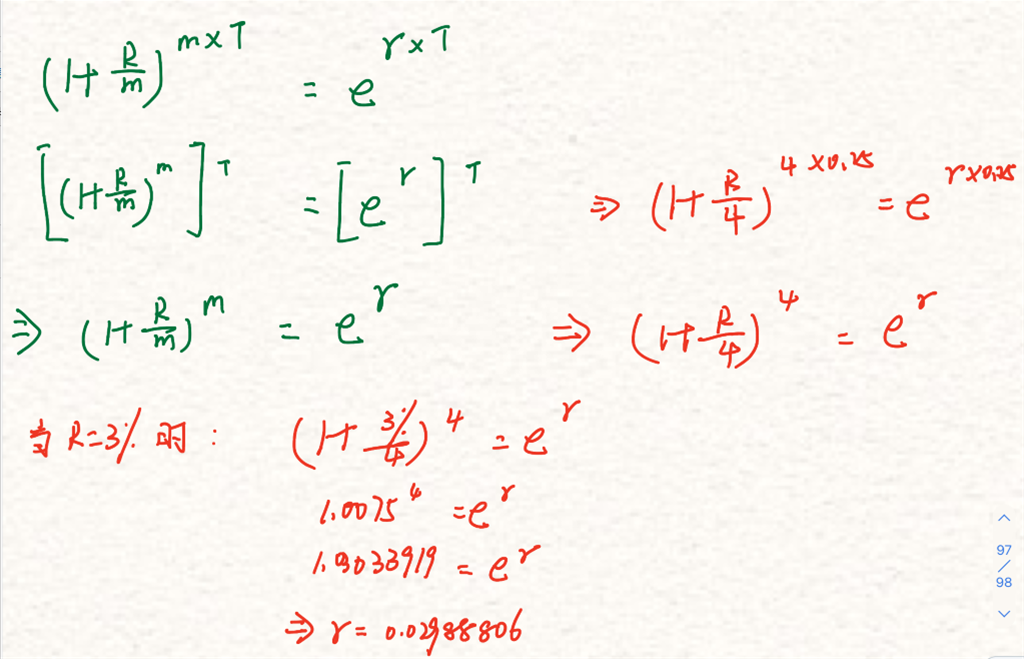 (1+R/m)^(m×T) = e^(r×T)
[(1+R/m)^m]^T = [e^r]^T
⇒ (1+R/4)^(4×0.25) = e^(r×0.25)
⇒ (1+R/m)^m = e^r
⇒ (1+R/4)^4 = e^r
当 R=3% 时: (1+3%/4)^4 = e^r
1.0075^4 = e^r
1.3033919 = e^r
⇒ r = 0.02988806
97
/
98